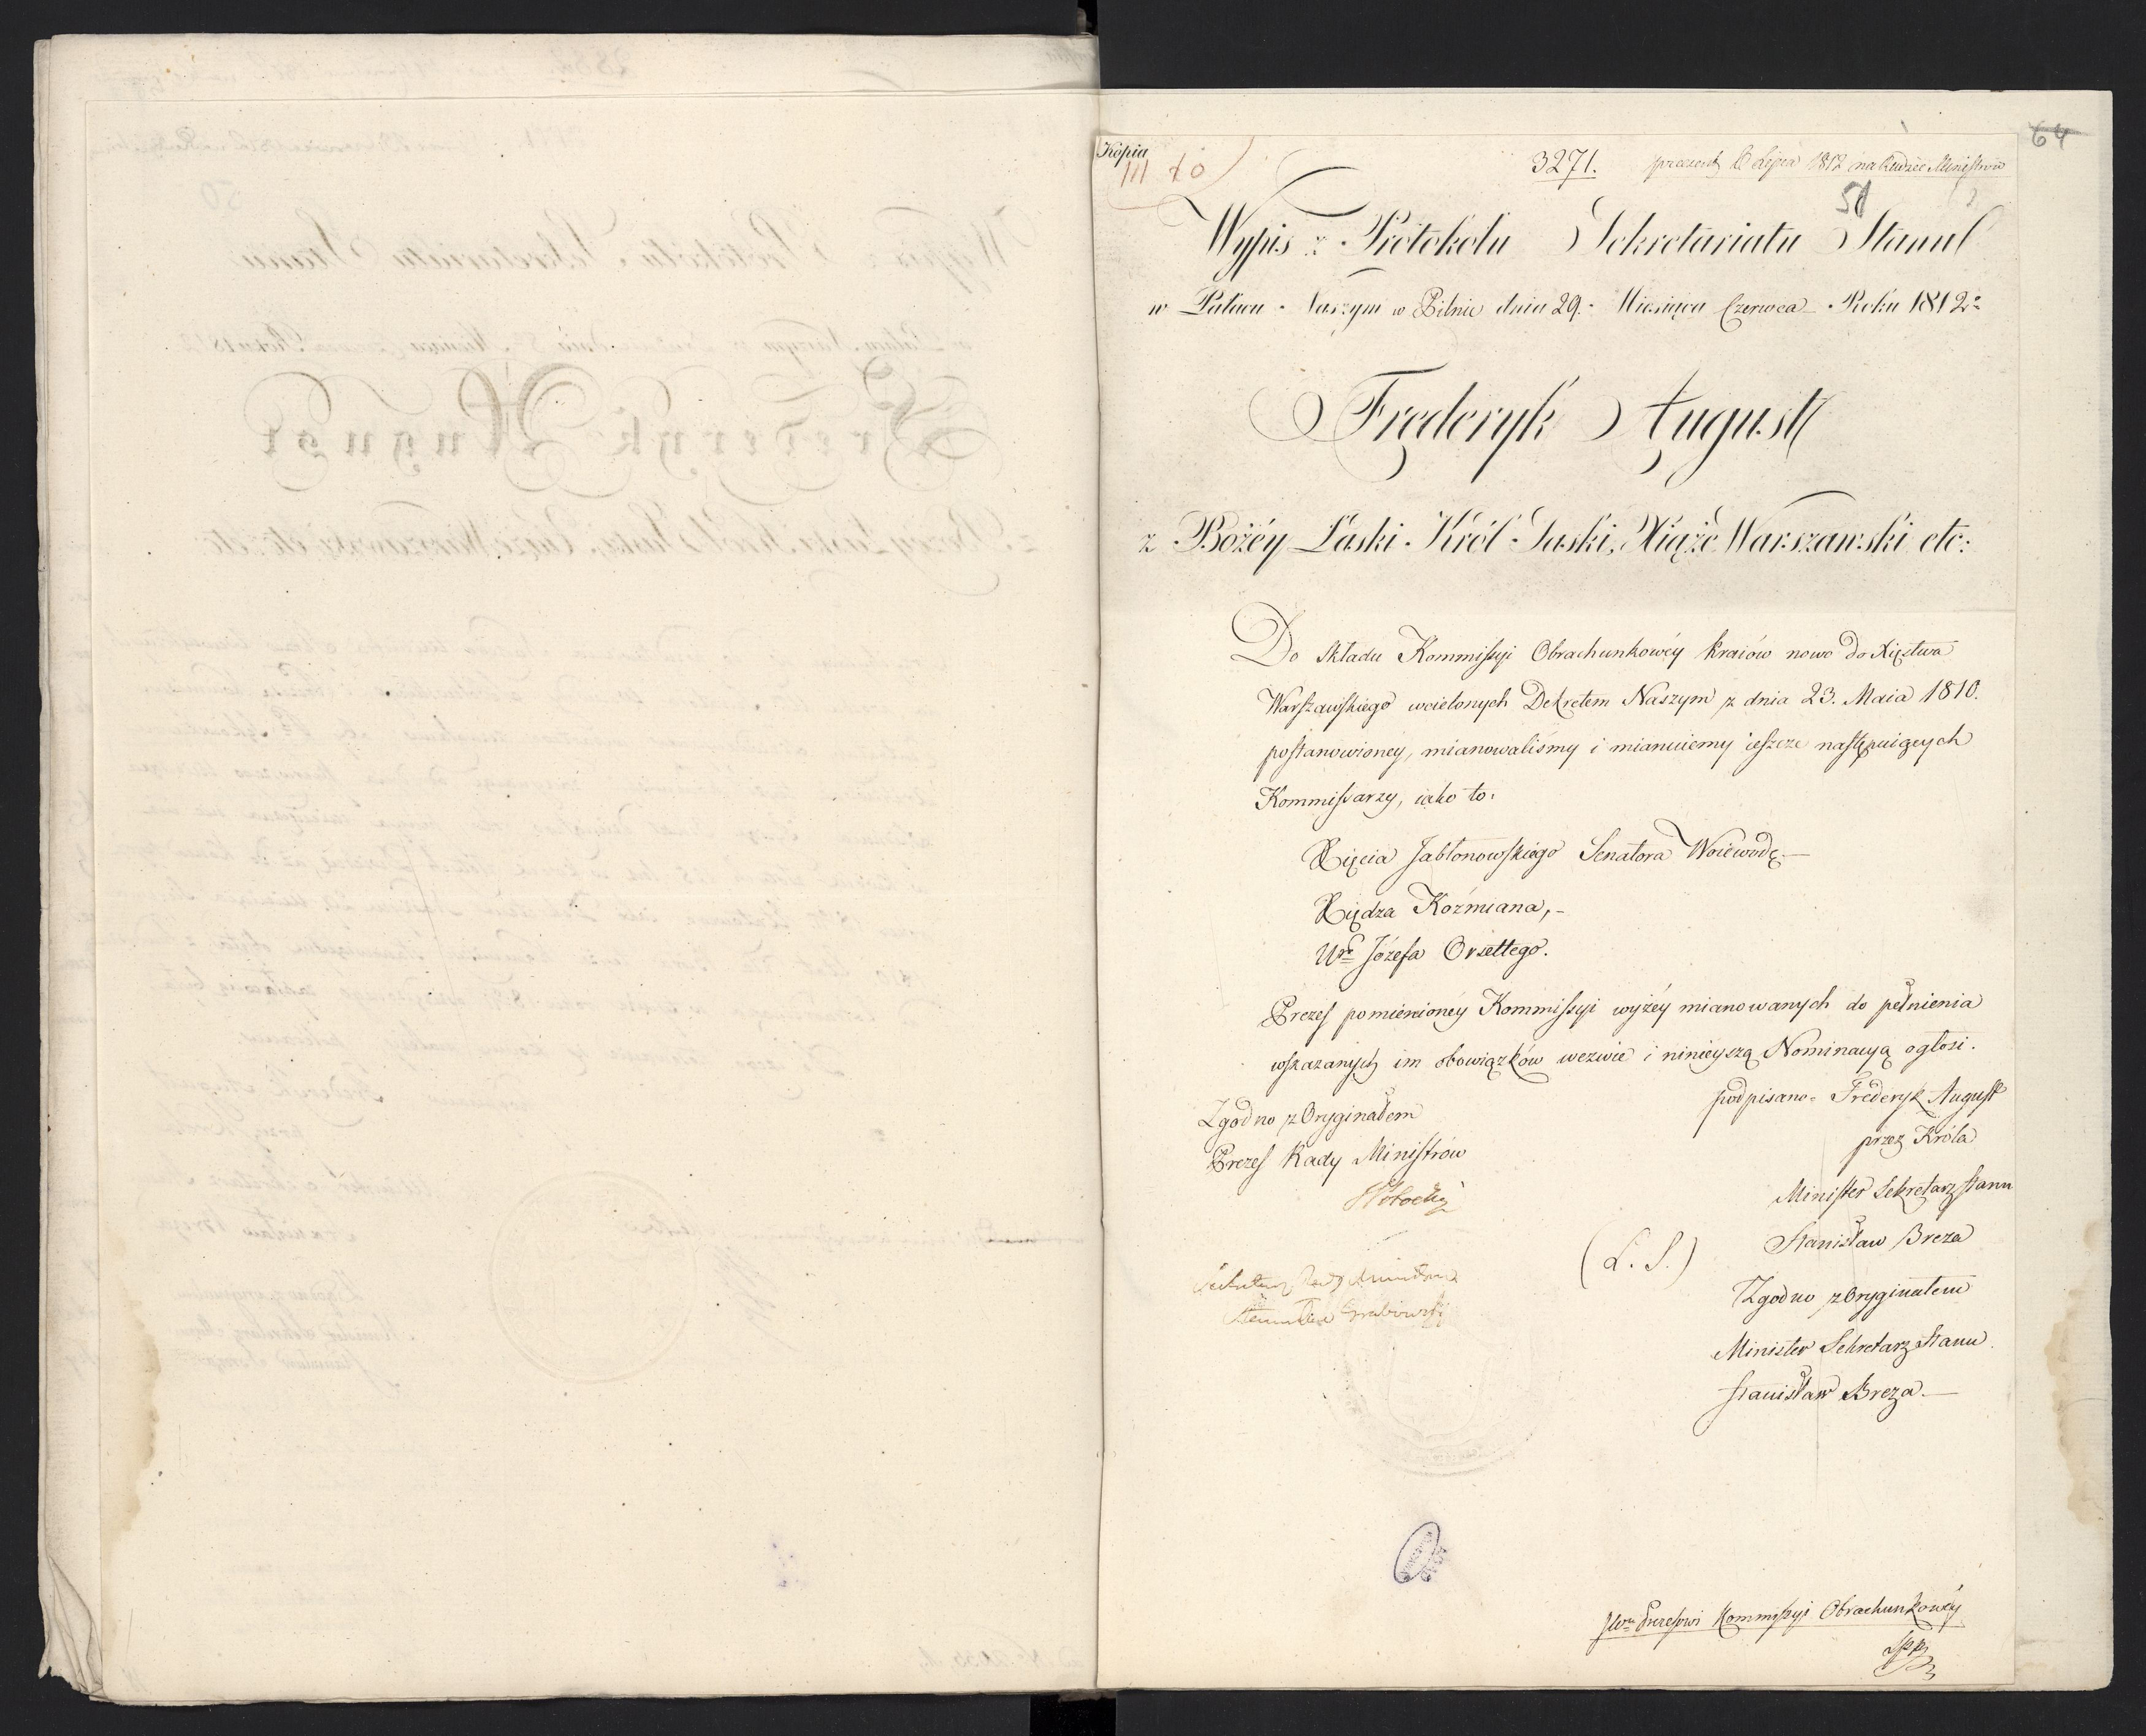 64
Kopia
3271. prezent 6 Lipca 1812 na Radzie Ministrów
51
Wypis z Protokołu Sekretariatu Stanu
w Pałacu Naszym w Pilnic dnia 29. Miesiąca Czerwca Roku 1812.
Fryderyk August
z Bożéy Łaski Król Saski, Xiąże Warszawski etc:
Do składu Kommissyi Obrachunkowéy kraiów nowo do Xięstwa
Warszawskiego wcielonych Dekretem Naszym z dnia 23. Maia 1810.
postanowioney, mianowaliśmy i mianuiemy ieszcze następuiących
Kommissarzy, iako to:
Xięcia Jabłonowskiego Senatora Woiewodę.—
Xiędza Koźmiana,-
Ur. Józefa Orsettego.
Prezes pomienionéy Kommissyi wyżéy mianowanych do pełnienia
wskazanych im obowiązków wezwie i ninieyszą Nominacyą ogłosi.
podpisano: Fryderyk August
przez Króla
Minister Sekretarz Stanu
Stanisław Breza
(L. S.)
Zgodno z Oryginałem
Minister Sekretarz Stanu
Stanisław Breza.—
Zgodno z Oryginałem
Prezes Rady Ministrów
Sekretarz Rady Ministrów
Grabowski
JWmu Prezesowi Kommissyi Obrachunkowéy